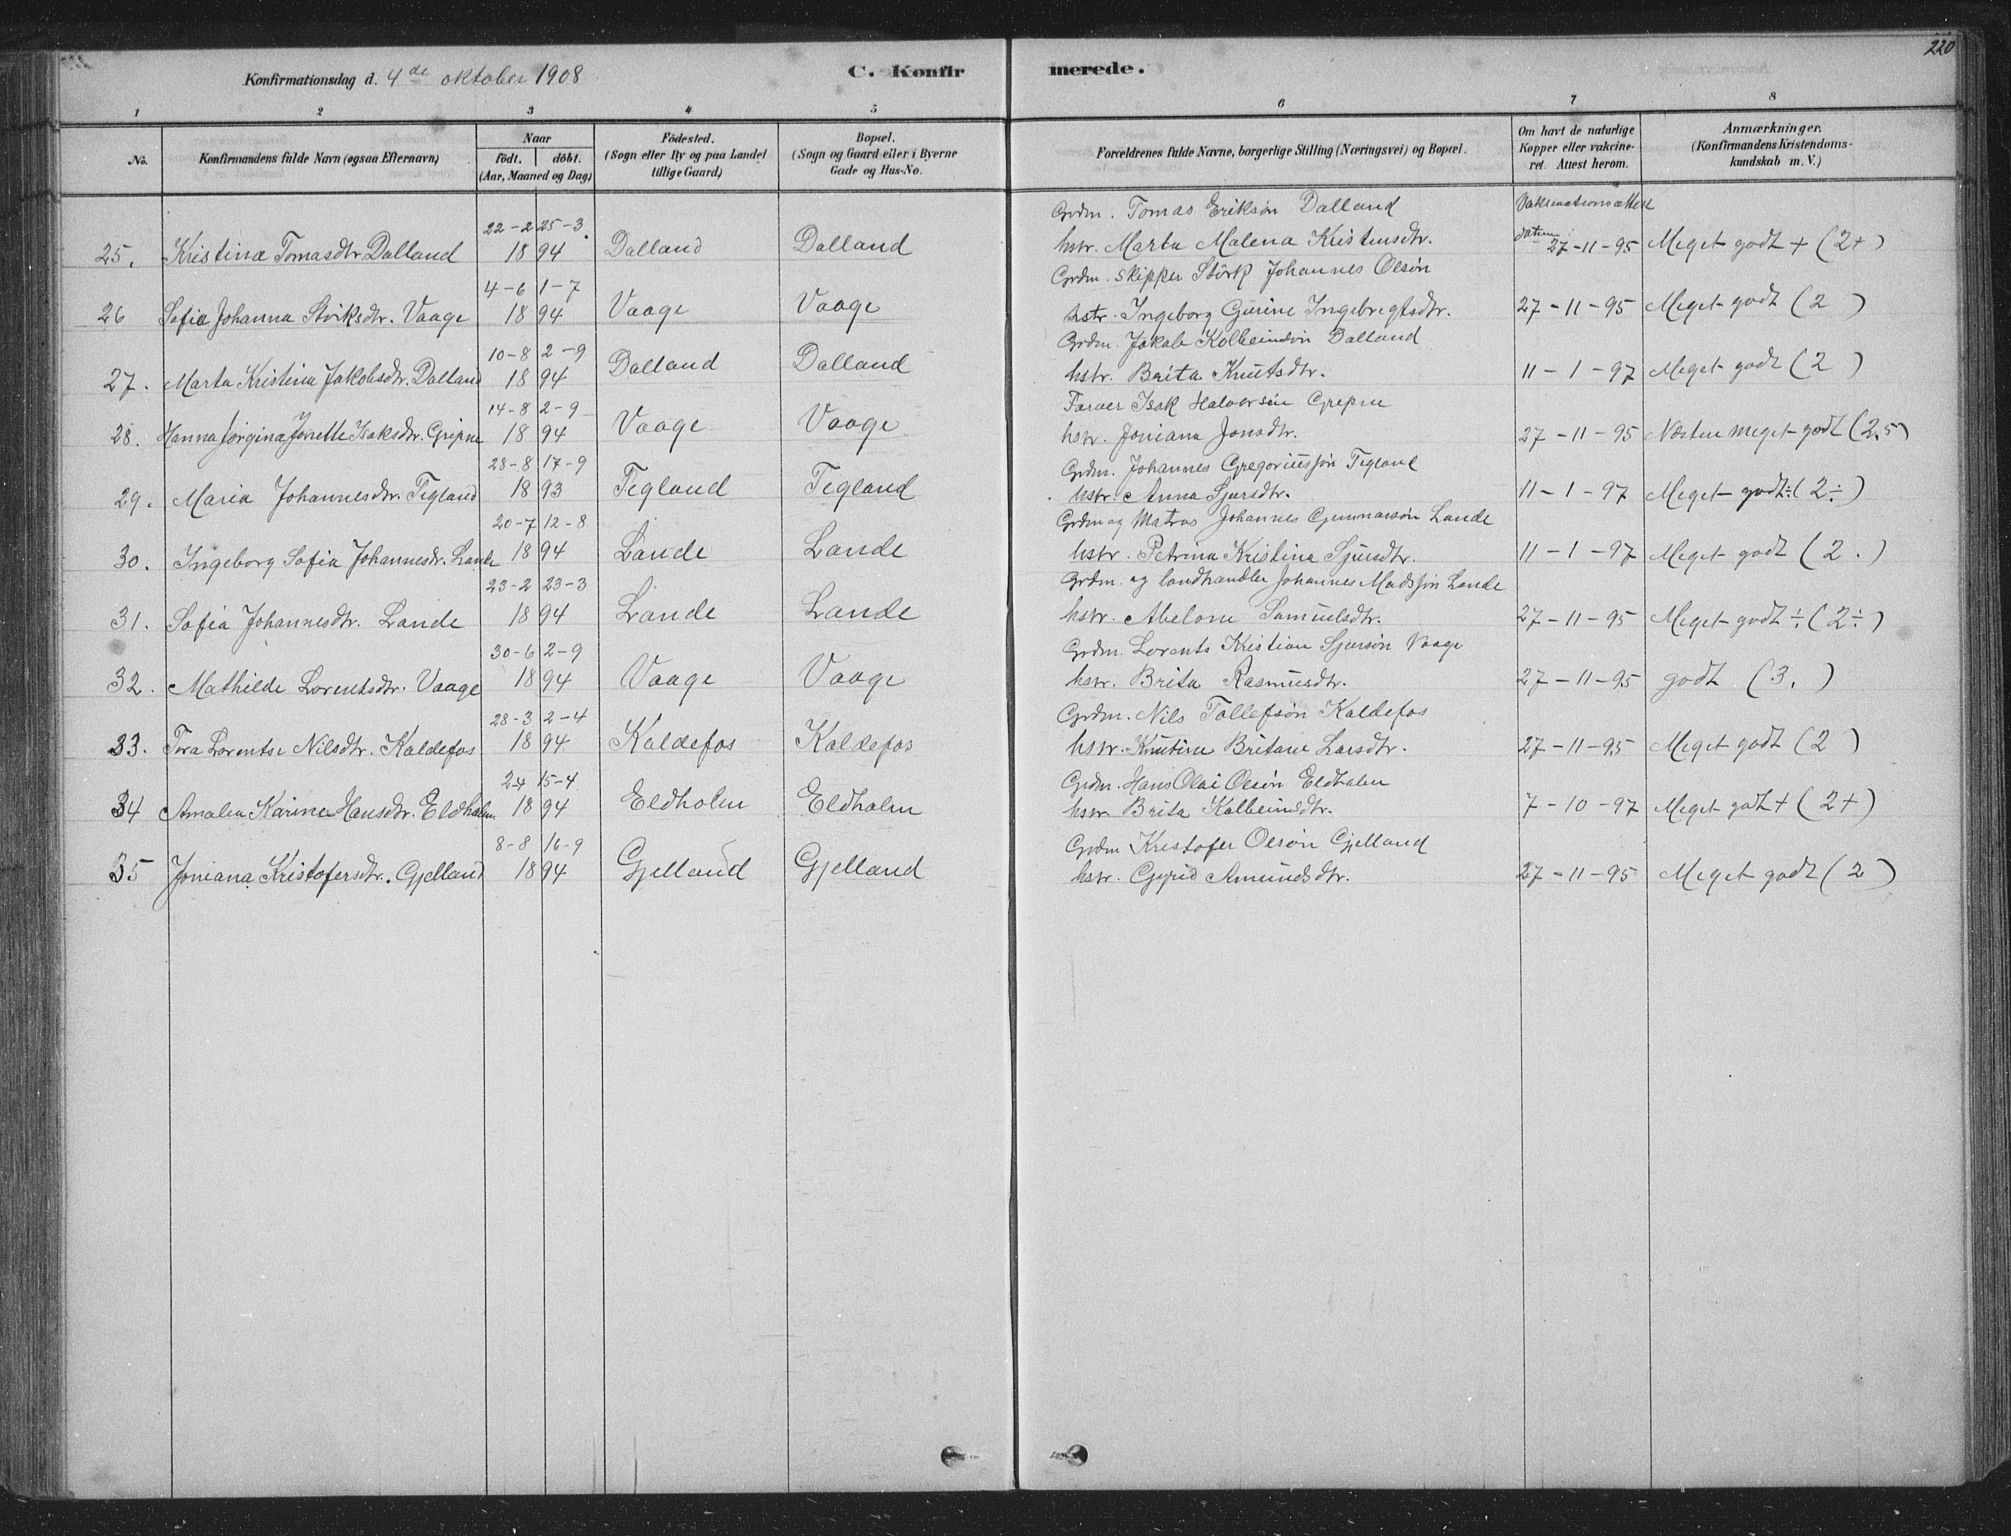 220
Konfirmationsdag d. 4de oktober 1908
C. Konfirmerede.
1 2 3 4 5 6 7 8
No.
Konfirmandens fulde Navn (ogsaa Efternavn)
Naar
födt. | döbt.
(Aar, Maaned og Dag)
Födested.
(Sogn eller By og paa Landet
tillige Gaard)
Bopæl.
(Sogn og Gaard eller i Byerne
Gade og Hus-No.
Forældrenes fulde Navne, borgerlige Stilling (Næringsvei) og Bopæl.
Om havt de naturlige
Kopper eller vakcine-
ret. Attest herom.
Anmærkninger.
(Konfirmandens Kristendoms-
kundskab m. V.)
22-2 25-3. Grdm. Tomas Eriksøn Dalland
25. Kristina Tomasdtr. Dalland 18 94 Dalland Dalland hstr. Marta Malena Kristensdtr. datum: 27-11-95 Meget godt + (2+)
4-6 1-7 Grdm. skipper Störk Johannes Olsön
26 Sofie Johanna Störksdtr. Vaage 18 94 Vaage Vaage hstr. Ingeborg Gurine Ingebregtsdtr. 27-11-95 Meget godt (2)
10-8 2-9 Grdm. Jakob Kolbeinsön Dalland
27. Marta Kristina Jakobsdtr. Dalland 18 94 Dalland Dalland hstr. Brita Knutsdtr. 11-1-97 Meget godt (2)
14-8 2-9 Farver Isak Halvorsen Grepne
28. Hanna Jørgina Jonette Isaksdtr. Grepne 18 94 Vaage Vaage hstr. Joniana Jonsdtr. 27-11-95 Næsten meget godt (2.5)
28-8 17-9 Grdm. Johannes Gregoriussön Tegland
29. Maria Johannesdtr. Tegland 18 93 Tegland Tegland hstr. Anna Sjursdtr. 11-1-97 Meget godt ÷ (2÷)
20-7 12-8 Grdm og Matros Johannes Gunnarsön Lande
30. Ingeborg Sofia Johannesdtr. Lande 18 94 Lande Lande hstr. Petrina Kristina Sjursdtr. 11-1-97 Meget godt (2.)
23-2 23-3 Grdm. og landhandler Johannes Madssön Lande
31. Sofia Johannesdtr. Lande 18 94 Lande Lande hstr. Abelone Samuelsdtr. 27-11-95 Meget godt ÷ (2÷)
30-6 2-9 Grdm. Lorents Kristian Sjursön Vaage
32. Mathilde Lorentsdtr. Vaage 18 94 Vaage Vaage hstr. Brita Rasmusdtr. 27-11-95 godt (3.)
28-3 2-4 Grdm. Nils Tollefsön Kaldefos
33. Tora Lorentse Nilsdtr. Kaldefos 18 94 Kaldefos Kaldefos hstr. Knutine Britane Larsdtr. 27-11-95 Meget godt (2)
2-4 15-4 Grdm. Hans Olai Olsön Eldholm
34 Amalia Karine Hansdtr. Eldholm 18 94 Eldholm Eldholm hstr. Brita Kolbeinsdtr. 7-10-97 Meget godt + (2+)
8-8 16-9 Grdm Kristofer Olsön Gjelland
35 Joniana Kristofersdtr. Gjelland 18 94 Gjelland Gjelland hstr. Gyrid Amundsdtr. 27-11-95 Meget godt (2)